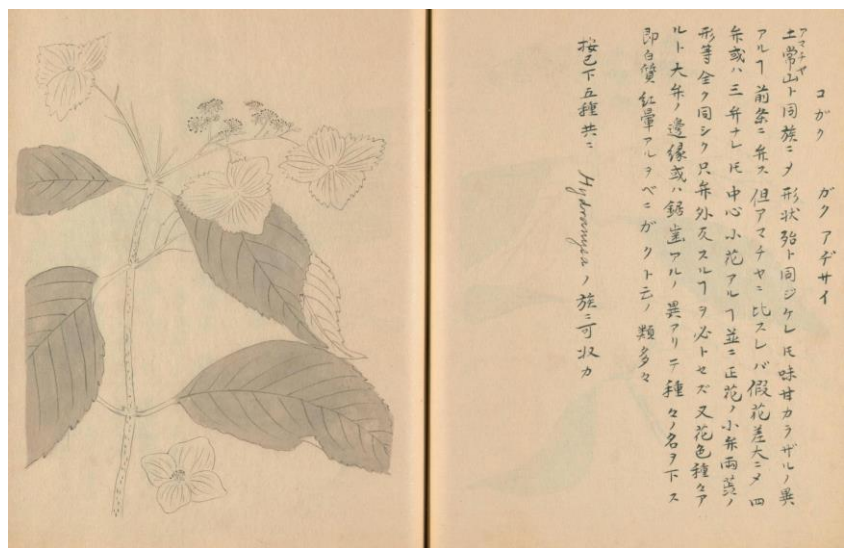 コガク　ガクアヂサイ
アマチヤ
土常山ト同族ニメ形状殆ト同ジケレ𪜈味甘カラザルノ異
アルヿ前条ニ弁ス但アマチヤニ比スレバ假花差大ニメ四
弁或ハ三弁ナレ𪜈中心小花アルヿ並ニ正花ノ小弁両蕊ノ
形等全ク同シク只弁外反スルヿヲ必トセズ又花色種々ア
ルト大弁ノ邉縁或ハ鋸歯アルノ異アリテ種々ノ名ヲ下ス
即白質紅暈アルヲベニガクト云ノ類多々
按已下五種共ニ Hydrangea ノ族ニ可収カ